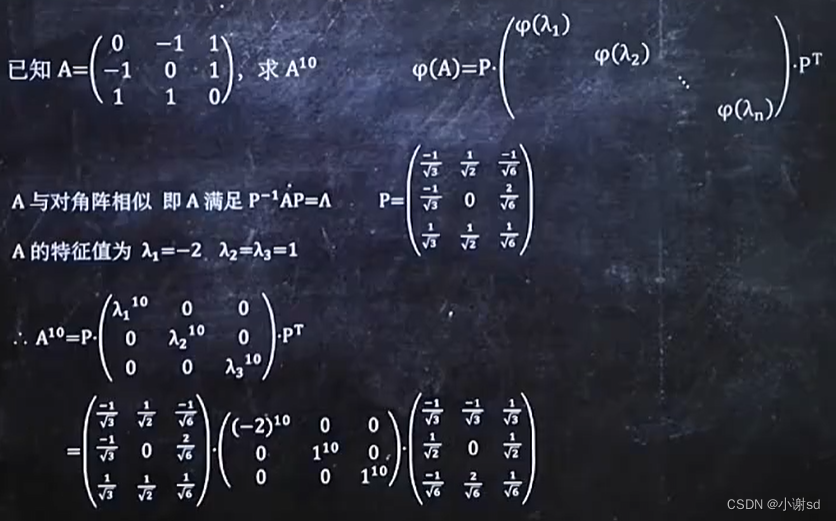 已知 A=(0 −1 1; −1 0 1; 1 1 0), 求 A¹⁰
φ(A)=P·(φ(λ₁) φ(λ₂) ⋱ φ(λₙ))·Pᵀ
A 与对角阵相似 即 A 满足 P⁻¹AP=Λ
P=(−1/√3 1/√2 −1/√6; −1/√3 0 2/√6; 1/√3 1/√2 1/√6)
A 的特征值为 λ₁=−2 λ₂=λ₃=1
∴ A¹⁰=P·(λ₁¹⁰ 0 0; 0 λ₂¹⁰ 0; 0 0 λ₃¹⁰)·Pᵀ
=(−1/√3 1/√2 −1/√6; −1/√3 0 2/√6; 1/√3 1/√2 1/√6)·((−2)¹⁰ 0 0; 0 1¹⁰ 0; 0 0 1¹⁰)·(−1/√3 −1/√3 1/√3; 1/√2 0 1/√2; −1/√6 2/√6 1/√6)
CSDN @小谢sd